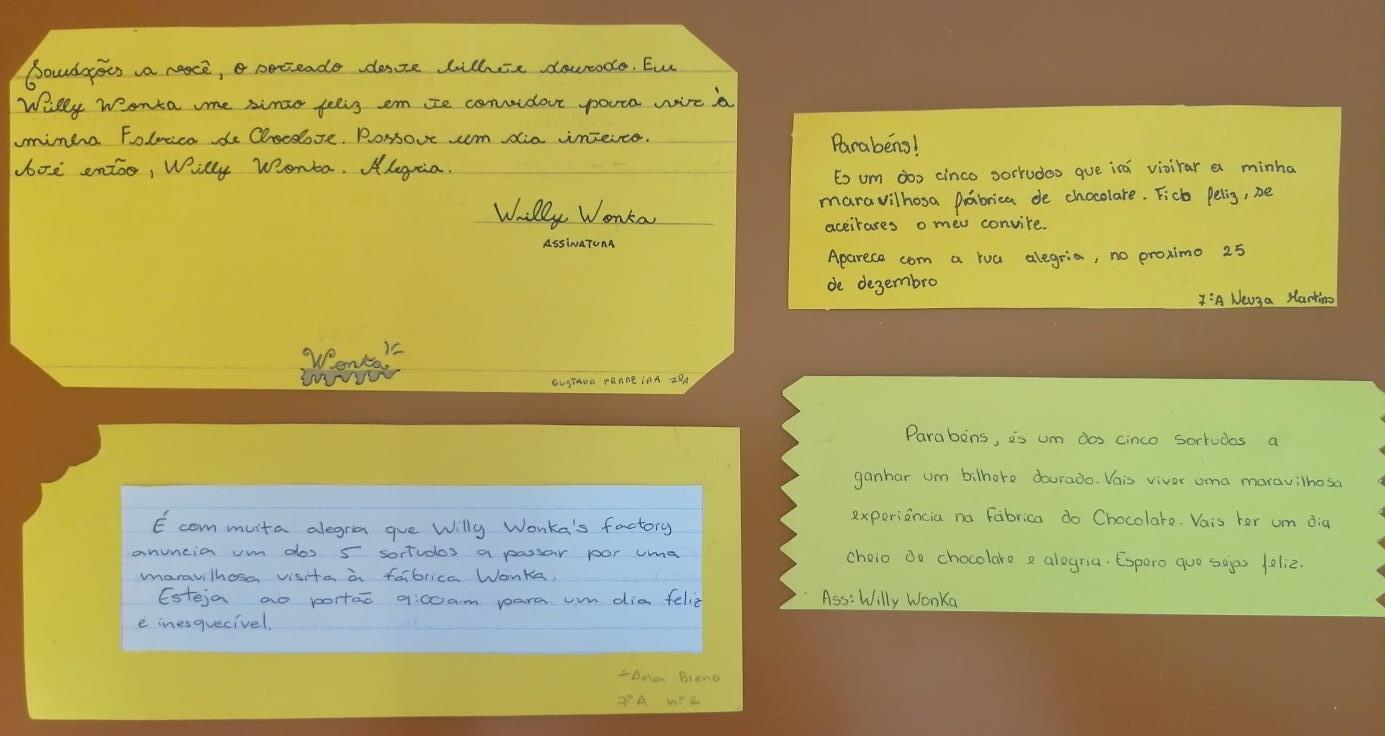 Saudações a você, o sorteado deste bilhete dourado. Eu
Willy Wonka me sinto feliz em te convidar para vir à
minha Fabrica de Chocolate. Passar um dia inteiro.
Até então, Willy Wonka. Alegria.
Willy Wonka
ASSINATURA
Wonka
GUSTAVO FERREIRA 7ºA
Parabéns!
Es um dos cinco sortudos que irá visitar a minha
maravilhosa fábrica de chocolate. Fico feliz, se
aceitares o meu convite.
Aparece com a tua alegria, no proximo 25
de dezembro
7ºA Neuza Martins
É com muita alegria que Willy Wonka's factory
anuncia um dos 5 sortudos a passar por uma
maravilhosa visita à fábrica Wonka.
Esteja ao portão 9:00am para um dia feliz
e inesquecível.
Ana
7ºA nº2
Parabéns, és um dos cinco sortudos a
ganhar um bilhete dourado. Vais viver uma maravilhosa
experiência na Fábrica do Chocolate. Vais ter um dia
cheio de chocolate e alegria. Espero que sejas feliz.
Ass: Willy Wonka